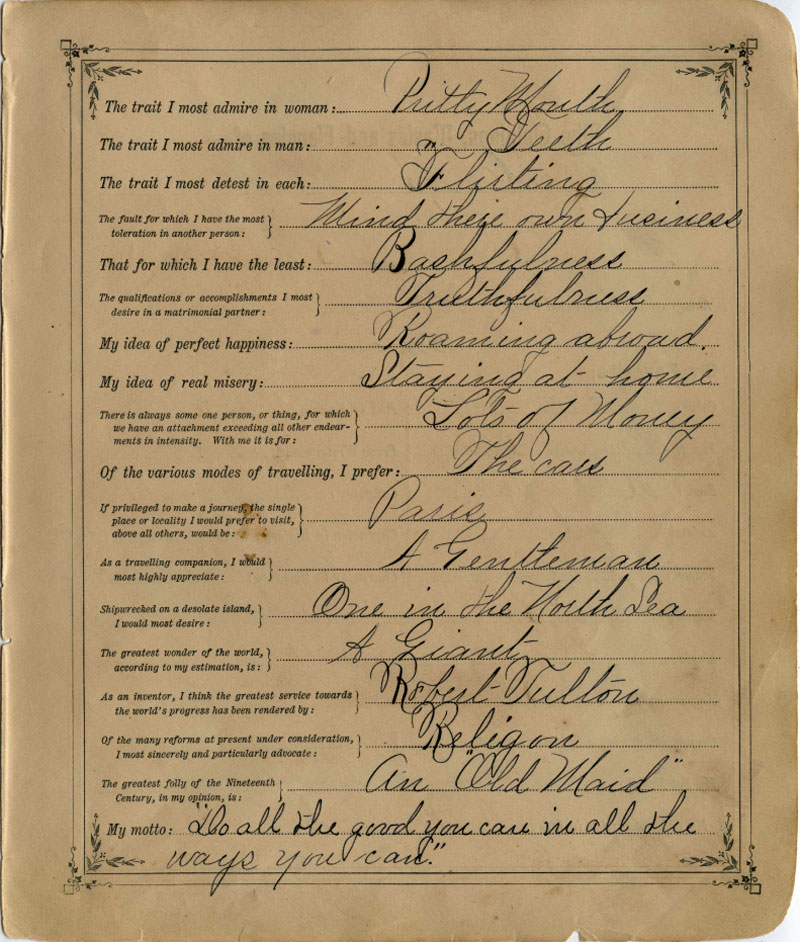 The trait I most admire in woman: Pritty Mouth
The trait I most admire in man: " Teeth
The trait I most detest in each: Flirting
The fault for which I have the most
toleration in another person: } Mind their own business
That for which I have the least: Bashfulness
The qualifications or accomplishments I most
desire in a matrimonial partner: } Truthfulness
My idea of perfect happiness: Roaming abroad.
My idea of real misery: Staying at home
There is always some one person, or thing, for which
we have an attachment exceeding all other endear-
ments in intensity. With me it is for: } Lots of Money
Of the various modes of travelling, I prefer: The cars
If privileged to make a journey, the single
place or locality I would prefer to visit,
above all others, would be: } Paris
As a travelling companion, I would
most highly appreciate: } A Gentleman
Shipwrecked on a desolate island,
I would most desire: } One in the North Sea
The greatest wonder of the world,
according to my estimation, is: } A Giant
As an inventor, I think the greatest service towards
the world's progress has been rendered by: } Robert Fulton
Of the many reforms at present under consideration,
I most sincerely and particularly advocate: } Religon
The greatest folly of the Nineteenth
Century, in my opinion, is: } An "Old Maid"
My motto: "Do all the good you can in all the
ways you can."